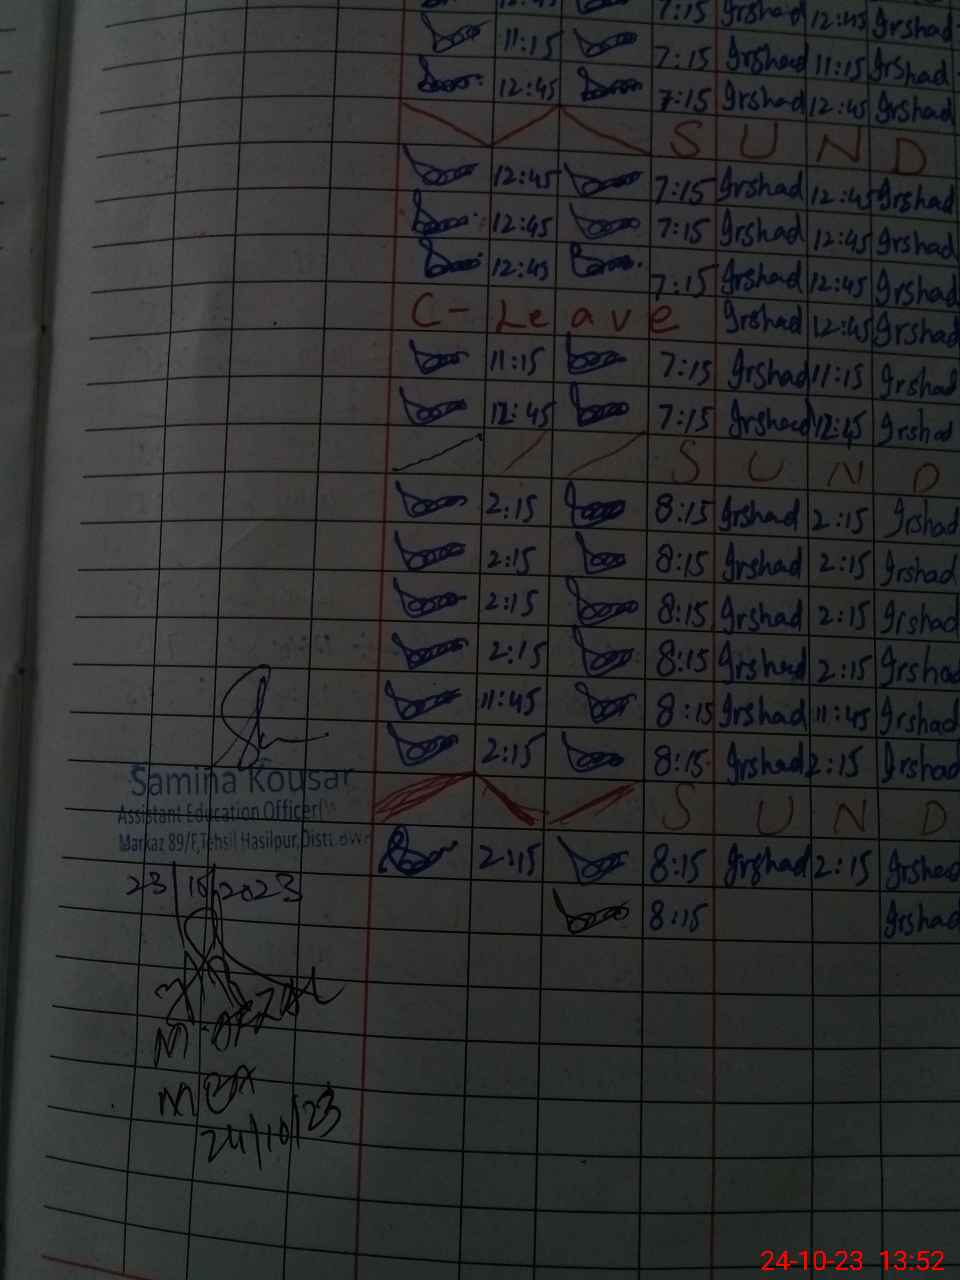 7:15 Irshad 12:45 Irshad
11:15 7:15 Irshad 11:15 Irshad
12:45 7:15 Irshad 12:45 Irshad
S U N D
12:45 7:15 Irshad 12:45 Irshad
12:45 7:15 Irshad 12:45 Irshad
12:45 7:15 Irshad 12:45 Irshad
C-Leave Irshad 12:45 Irshad
11:15 7:15 Irshad 11:15 Irshad
12:45 7:15 Irshad 12:45 Irshad
S U N D
2:15 8:15 Irshad 2:15 Irshad
2:15 8:15 Irshad 2:15 Irshad
2:15 8:15 Irshad 2:15 Irshad
2:15 8:15 Irshad 2:15 Irshad
11:45 8:15 Irshad 11:45 Irshad
2:15 8:15 Irshad 2:15 Irshad
S U N D
2:15 8:15 Irshad 2:15 Irshad
8:15 Irshad
Samina Kousar
Assistant Education Officer
Markaz 89/F, Tehsil Hasilpur, Distt. BWP
23/10/2023
24/10/23
24-10-23 13:52